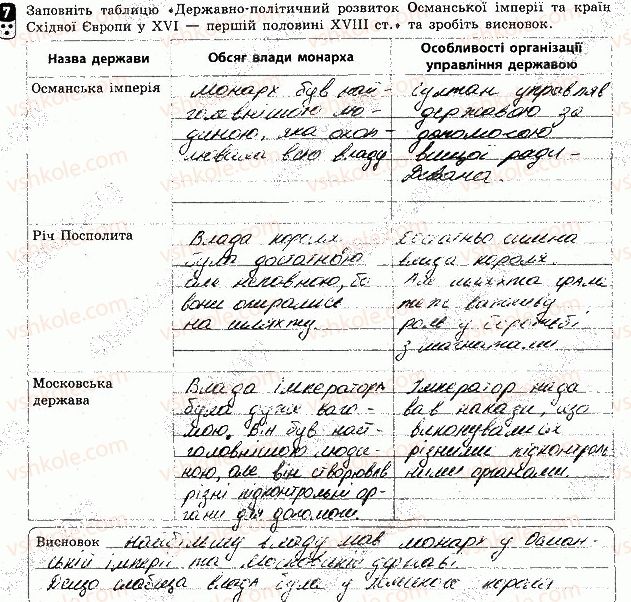 7 Заповніть таблицю «Державно-політичний розвиток Османської імперії та країн
Східної Європи у XVI — першій половині XVIII ст.» та зробіть висновок.
Назва держави
Обсяг влади монарха
Особливості організації
управління державою
Османська імперія
Монарх був най-
головнішою лю-
диною, яка охоп-
лювала всю владу
Султан управляв
державою за
допомогою
вищої ради -
Дивана.
Річ Посполита
Влада короля
була достатньою
але неповною, бо
вони опирались
на шляхту.
Достатньо сильна
влада короля.
Але шляхта грала
теж важливу
роль у боротьбі
з магнатами
Московська
держава
Влада імператора
була дуже ваго-
мою. Він був най-
головнішою люди-
ною, але він створював
різні підконтрольні ор-
гани для допомоги.
Імператор вида
вав накази, що
виконувались
різними підконтроль
ними органами.
Висновок найбільшу владу мав монарх у Осман-
ській імперії та Московській державі.
Дещо слабша влада була у короля
vshkole.com